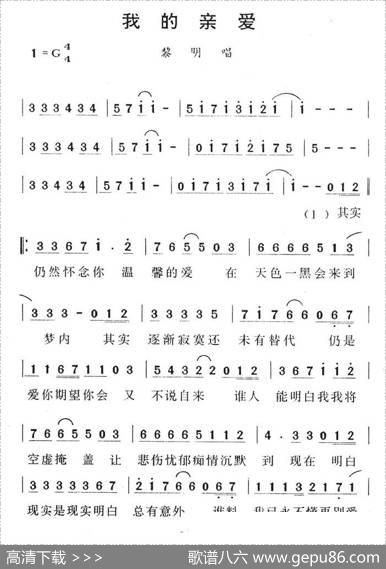 我的亲爱
1=G 4/4
黎明唱
| 3 3 3 4 3 4 | 5 7 i i - | 5 i 7 i 3 i 2 i | i - - - |
| 3 3 3 4 3 4 | 5 7 i i - | 0 i 7 i 2 i 7 5 | 5 - - - |
| 3 3 3 4 3 4 | 5 7 i i - | 0 i 7 i 3 i 7 i | i - 0 1 2 |
(1)其实
‖: 3 3 6 7 i · 2 | 7 6 5 5 0 3 | 6 6 6 6 5 1 3 |
仍然怀念你 温 馨的爱 在 天色一黑会来到
| 3 3 3 - 0 1 2 | 3 3 3 3 5 | 7 i 7 6 6 0 6 7 |
梦内 其实 逐渐寂寞还 未有替代 仍是
| 1 1 6 7 1 1 0 3 | 2 1 2 0 1 2 | 3 6 7 i i 2 |
爱你期望你会 又 不说自来 谁人 能明白我我将
| 7 6 6 5 5 0 3 | 6 6 6 6 5 1 1 2 | 4 · 3 3 0 1 2 |
空虚掩 盖让 悲伤忧郁痴情沉默 到 现在 明白
| 3 3 3 3 3 6 7 | 2 i 7 6 6 0 6 7 | 1 1 1 3 2 1 7 1 |
现实是现实明白 总有意外 谁料 我已永不懂再别爱
高清下载 >>>
歌谱八六 www.gepu86.com